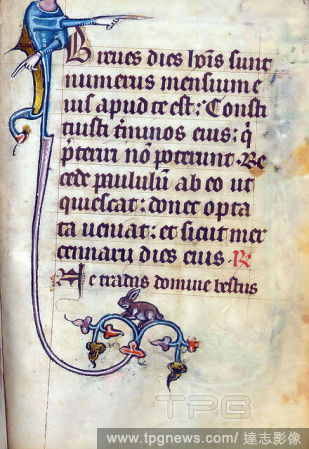 Breues dies hoĩs sunt
numerus mensium e
ius apud te est: Consti
tuisti t̃minos eius: q̃
p̃teriri nõ poterunt. Re
cede paululũ ab eo ut
quiescat: donec opta
ta ueniat: et sicut mer
cennarii dies eius. R
Ne tradas domine bestiis
TPG
www.tpgnews.com/ 達志影像